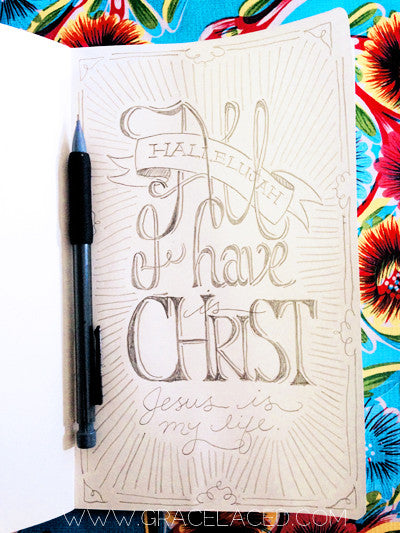 All
HALLELUJAH
I have
is
CHRIST
Jesus is
my life.
WWW.GRACELACED.COM